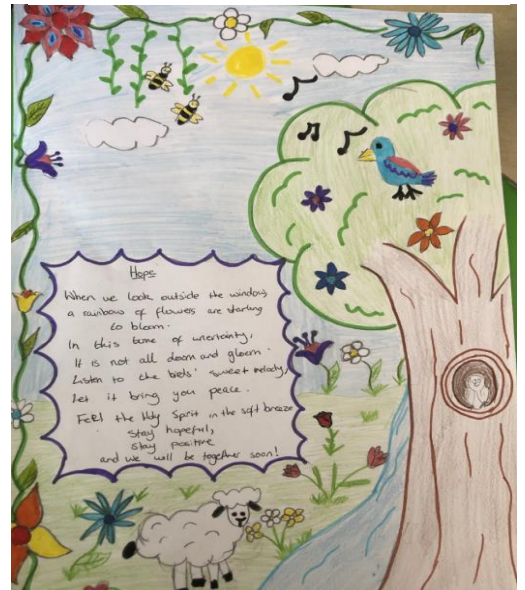 Hope
When we look outside the window,
a rainbow of flowers are starting
to bloom.
In this time of uncertainty,
It is not all doom and gloom.
Listen to the birds' sweet melody,
Let it bring you peace.
Feel the Holy Spirit in the soft breeze
Stay hopeful,
Stay positive
and we will be together soon!